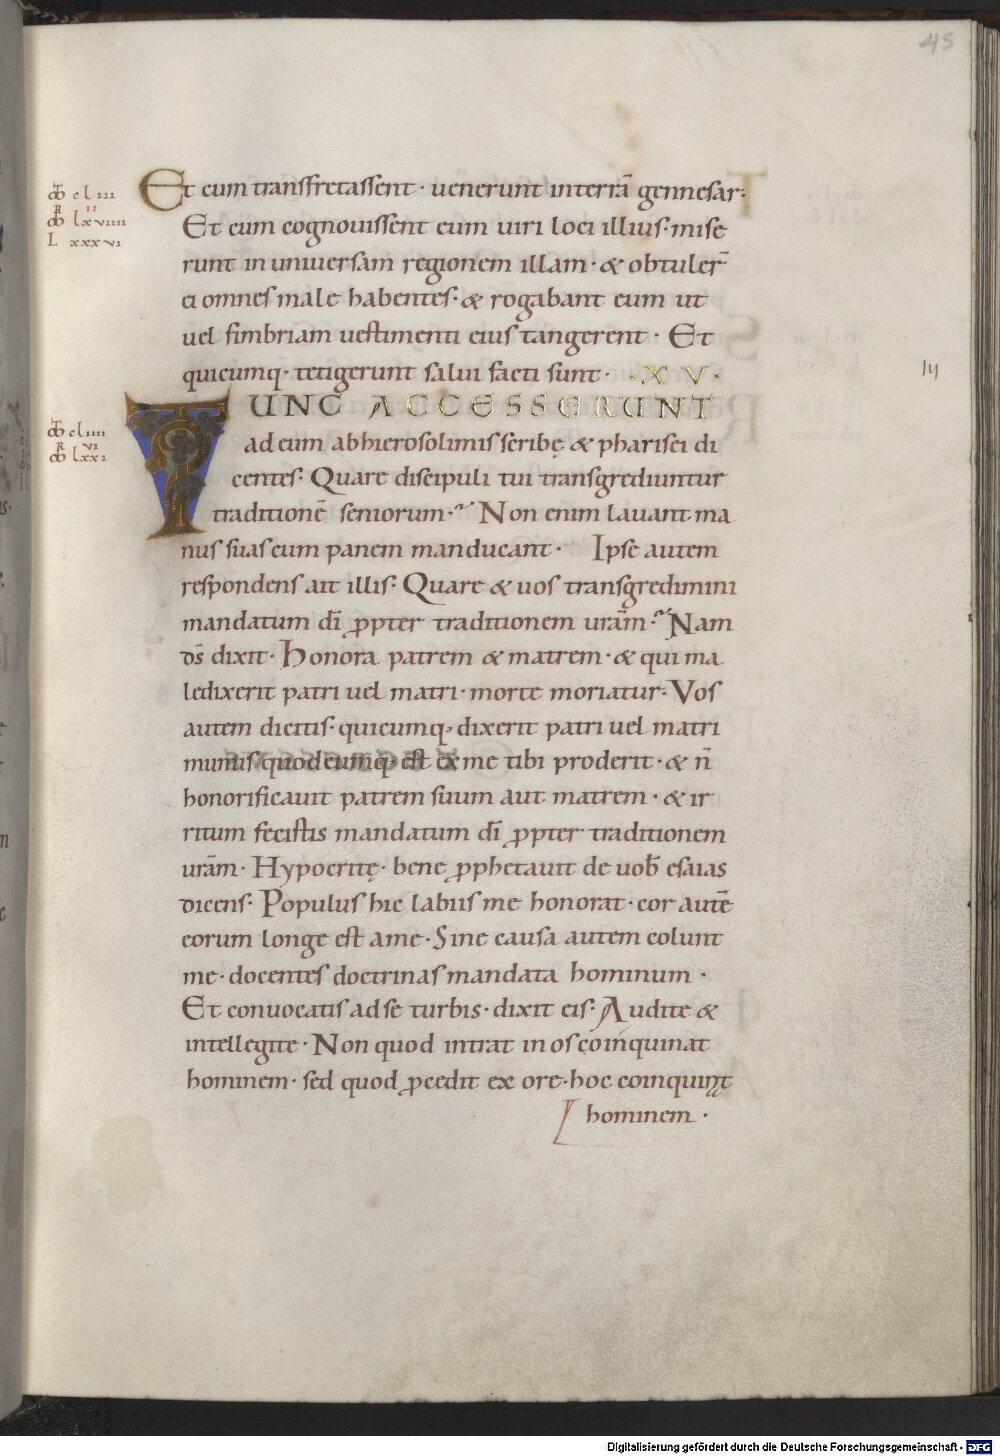 45
Et cum transfretassent · uenerunt in terrā gennesar·
Et cum cognouissent eum uiri loci illius· mise
runt in uniuersam regionem illam · & obtuler̄
ei omnes male habentes· & rogabant eum ut
uel fimbriam uestimenti eius tangerent · Et
quicumq· tetigerunt salui facti sunt · · X V ·
TUNC ACCESSERUNT
ad eum ab hierosolimis scribę & pharisei di
centes· Quare discipuli tui transgrediuntur
traditionē seniorum · Non enim lauant ma
nus suas cum panem manducant · Ipse autem
respondens ait illis· Quare & uos transgredimini
mandatum dī ꝓpter traditionem urām · Nam
ds̄ dixit · Honora patrem & matrem · & qui ma
ledixerit patri uel matri · morte moriatur· Vos
autem dicitis· quicumq· dixerit patri uel matri
munus quodcumq· est ex me tibi proderit · & n̄
honorificauit patrem suum aut matrem · & ir
ritum fecistis mandatum dī ꝓpter traditionem
urām · Hypocritę · bene ꝓphetauit de uob̄ esaias
dicens· Populus hic labiis me honorat · cor autē
eorum longe est a me · Sine causa autem colunt
me · docentes doctrinas mandata hominum ·
Et conuocatis ad se turbis · dixit eis· Audite &
intellegite · Non quod intrat in os coinquinat
hominem · sed quod ꝓcedit ex ore · hoc coinquinat
hominem ·
Digitalisierung gefördert durch die Deutsche Forschungsgemeinschaft - DFG